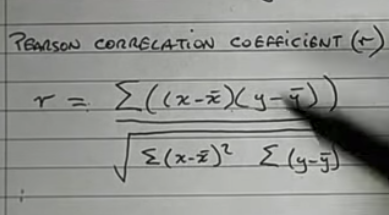 PEARSON CORRELATION COEFFICIENT (r)
r = Σ((x-x̄)(y-ȳ))
√Σ(x-x̄)² Σ(y-ȳ)